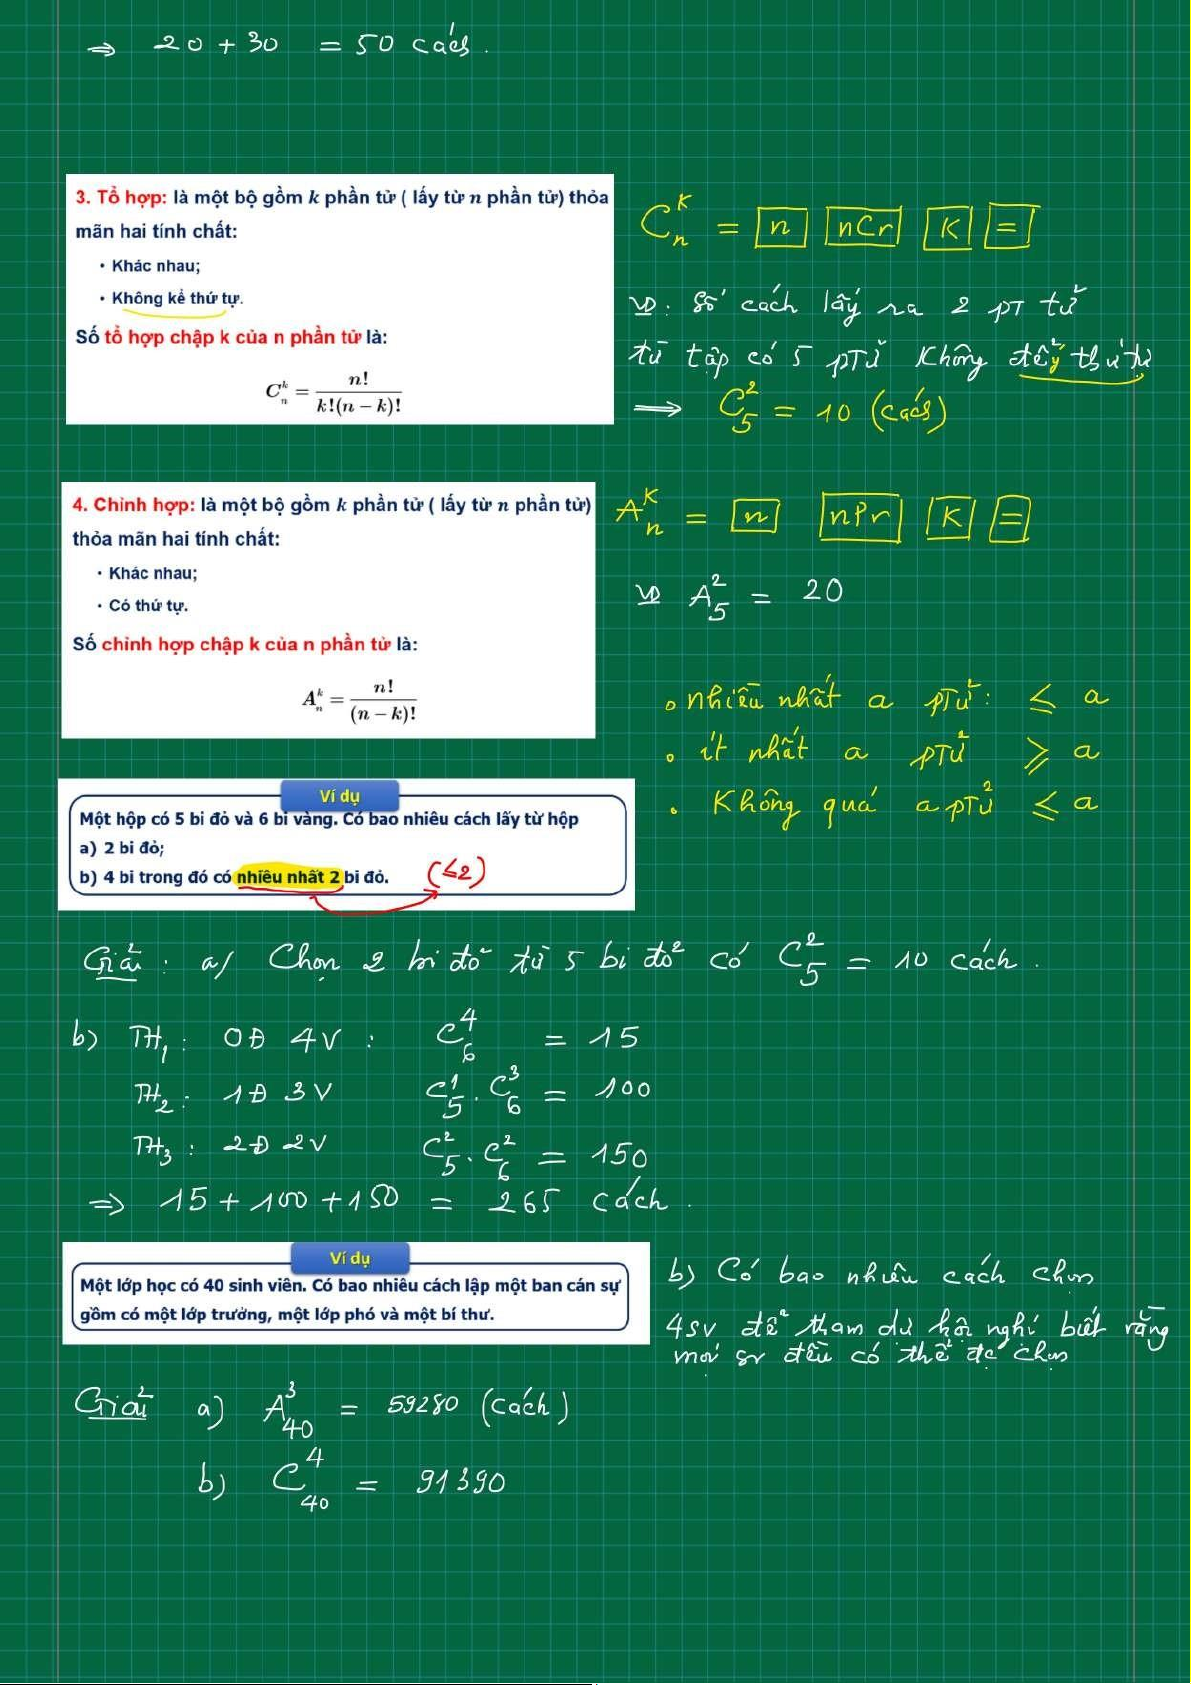 ⇒ 20 + 30 = 50 cách.
3. Tổ hợp: là một bộ gồm k phần tử ( lấy từ n phần tử) thỏa
mãn hai tính chất:
• Khác nhau;
• Không kể thứ tự.
Số tổ hợp chập k của n phần tử là:
C_n^k = n! / k!(n − k)!
C_n^k = [n] [nCr] [k] [=]
VD: Số cách lấy ra 2 pT tử
từ tập có 5 pTử không để ý thứ tự
⟹ C_5^2 = 10 (cách)
4. Chỉnh hợp: là một bộ gồm k phần tử ( lấy từ n phần tử)
thỏa mãn hai tính chất:
• Khác nhau;
• Có thứ tự.
Số chỉnh hợp chập k của n phần tử là:
A_n^k = n! / (n − k)!
A_n^k = [n] [nPr] [k] [=]
VD A_5^2 = 20
• nhiều nhất a pTử: ≤ a
• ít nhất a pTử ≥ a
• Không quá a pTử ≤ a
Ví dụ
Một hộp có 5 bi đỏ và 6 bi vàng. Có bao nhiêu cách lấy từ hộp
a) 2 bi đỏ;
b) 4 bi trong đó có nhiều nhất 2 bi đỏ. (≤2)
Giải: a/ Chọn 2 bi đỏ từ 5 bi đỏ có C_5^2 = 10 cách.
b) TH1: 0Đ 4V: C_6^4 = 15
TH2: 1Đ 3V C_5^1 . C_6^3 = 100
TH3: 2Đ 2V C_5^2 . C_6^2 = 150
⇒ 15 + 100 + 150 = 265 cách.
Ví dụ
Một lớp học có 40 sinh viên. Có bao nhiêu cách lập một ban cán sự
gồm có một lớp trưởng, một lớp phó và một bí thư.
b) Có bao nhiêu cách chọn
4sv để tham dự hội nghị biết rằng
mọi sv đều có thể đc chọn
Giải a) A_40^3 = 59280 (cách)
b) C_40^4 = 91390